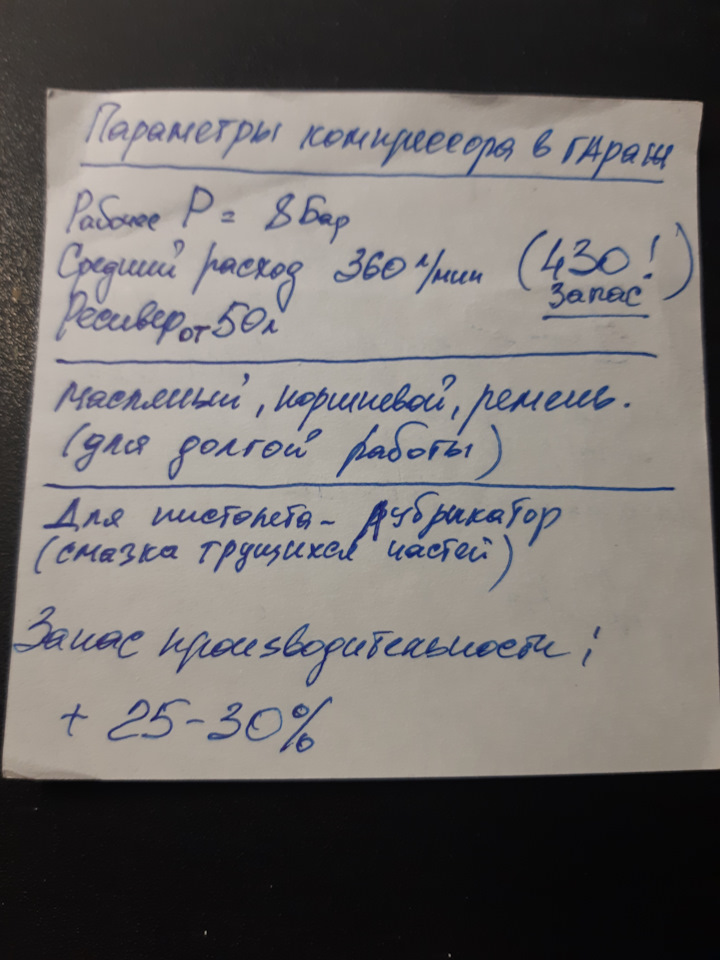 Параметры компрессора в гараж
Рабочее P = 8 Бар
Средний расход 360 л/мин (430!)
Запас
Ресивер от 50 л
Масляный, поршневой, ремень.
(для долгой работы)
Для пистолета - лубрикатор
(смазка трущихся частей)
Запас производительности:
+ 25-30%